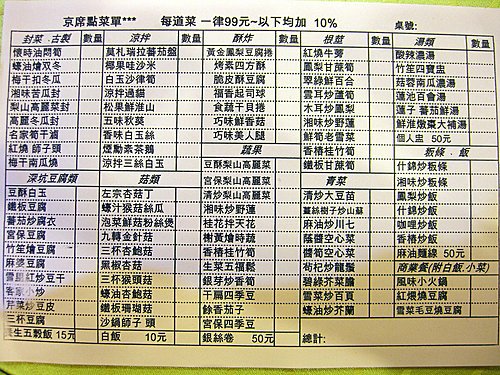 京席點菜單*** 每道菜 一律99元~以下均加 10% 桌號:
封菜.古製 數量
懷時油悶筍
蠔油燴双冬
梅干扣冬瓜
湘味苦瓜封
梨山高麗菜封
高麗冬瓜封
名家筍干滷
紅燒 師子頭
梅干南瓜燒
深坑豆腐類
豆酥白玉
鐵板豆腐
蕃茄炒腐衣
宮保豆腐
竹笙燴豆腐
麻婆豆腐
雪里紅炒豆干
客家小炒
芹菜炒豆皮
三杯豆腐
養生五穀飯 15元
涼拌 數量
莫札瑞拉蕃茄盤
椰果哇沙米
白玉沙律筍
涼拌過貓
松果鮮淮山
五味秋葵
香味白玉絲
煙勳素茶鵝
涼拌三絲白玉
菇類
左宗杏菇丁
蠔汁猴菇絲瓜
泡菜鮮菇粉絲煲
九轉金針菇
三杯杏鮑菇
黑椒杏菇
三杯猴頭菇
蠔油杏鮑菇
鐵板珊瑚菇
沙鍋師子 頭
白飯 10元
酥炸 數量
黃金鳳梨豆腐捲
烤素四方酥
脆皮酥豆腐
福香起司球
食蔬干貝捲
巧味鮮香菇
巧味美人腿
蔬果
豆酥梨山高麗菜
宮保梨山高麗菜
清炒梨山高麗菜
湘味炒野蓮
桂花拌天花
樹黃燴時蔬
香椿桂竹筍
生菜五福鬆
銀芽炒香筍
干扁四季豆
餘香茄子
宮保四季豆
銀絲卷 50元
根莖 數量
紅燒牛蒡
鳳梨甘蔗筍
翠綠鮮百合
雲耳炒蘆筍
木耳炒鳳梨
湘味炒野蓮
鮮筍老雪菜
香椿桂竹筍
鐵板甘蔗筍
青菜
清炒大豆苗
薑絲樹子炒山蘇
麻油炒川七
蔭醬空心菜
醬筍空心菜
枸杞炒龍鬚
碧綠芥菜膽
雪菜炒百頁
蠔油炒芥蘭
總計:
湯類 數量
酸辣濃湯
竹笙四寶盅
菇蓉南瓜濃湯
蓮池百會湯
蓮子 蕃茄鮮湯
鮮淮燉棗大補湯
個人盅 50元
粄條.飯
什錦炒粄條
湘味炒粄條
鳳梨炒飯
什錦炒飯
咖哩炒飯
香椿炒飯
麻油麵線 50元
商業餐(附白飯.小菜)
風味小火鍋
紅煨燒豆腐
雪菜毛豆燒豆腐